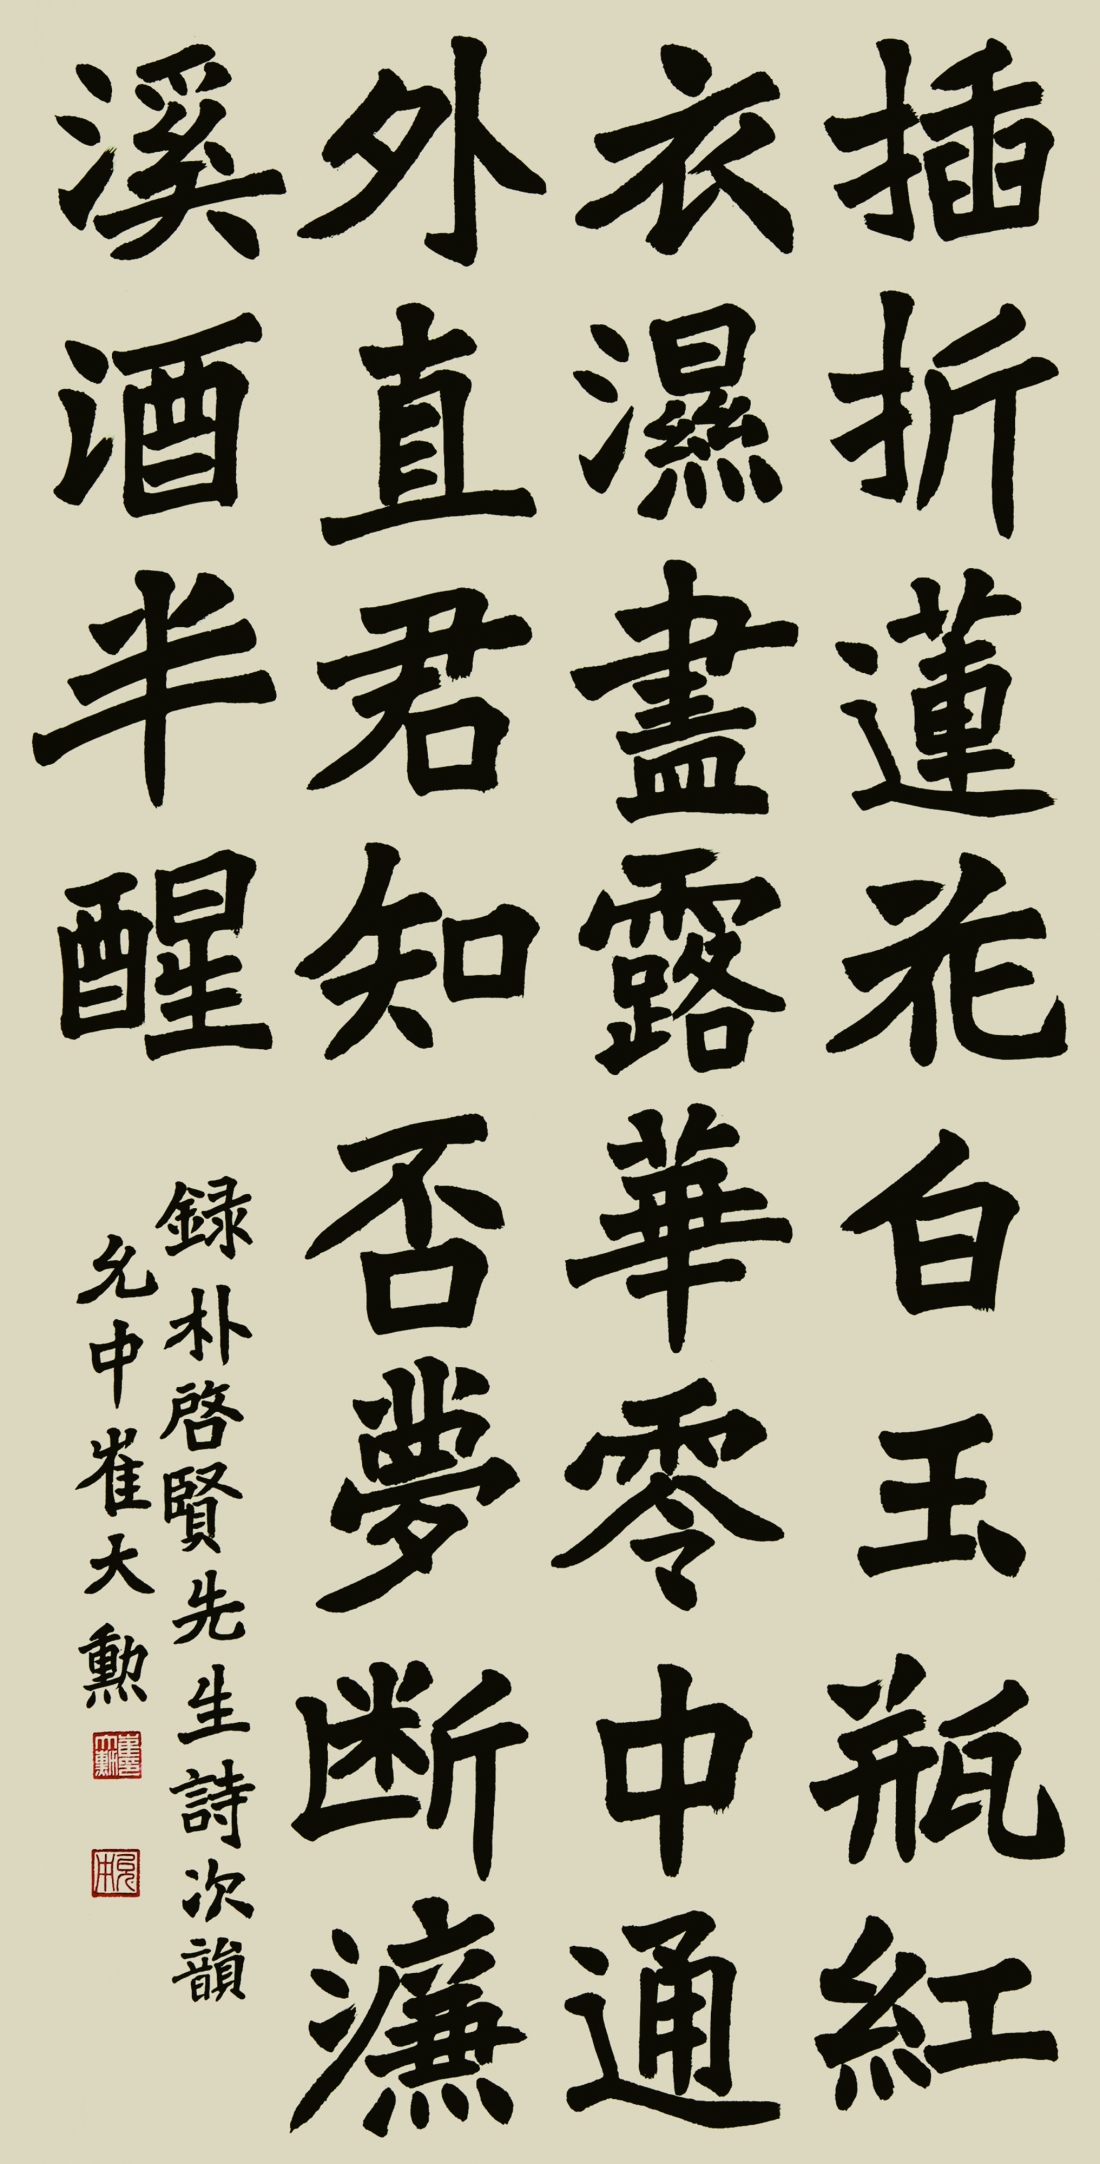 插折蓮花白玉瓶紅
衣濕盡露華零中通
外直君知否夢断濂
溪酒半醒
録朴啓賢先生詩次韻
允中崔大勳